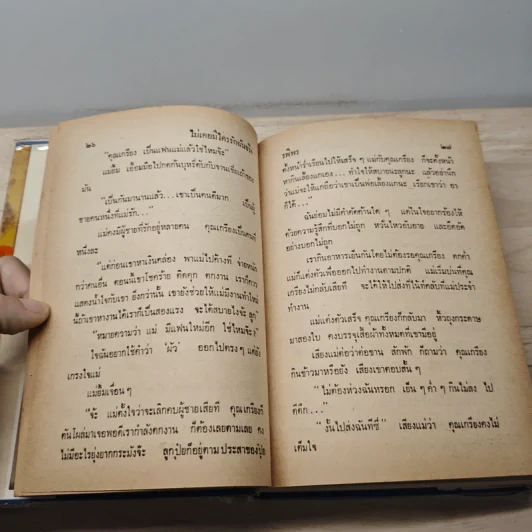 ๒๖ ไม่เคยมีใครรักฉันจริง
"คุณเกรียง เป็นแฟนแม่แล้วใช่ไหมจ๊ะ"
แม่ยิ้ม เอื้อมมือไปกดก้นบุหรี่ดับกับจานเขี่ย
มัน
"เป็นกันมานานแล้ว...เขาเป็นคนดีมาก เป็นผู้
ชายคนหนึ่งที่แม่รัก..."
แม่คงมีผู้ชายที่รักอยู่หลายคน คุณเกรียงเป็นคนที่
หนึ่งละ
"แต่ก่อนเขาหาเงินคล่อง พาแม่ไปค้างที จ่ายหนัก
กว่าคนอื่น ตอนนี้เขาโชคร้าย ติดคุก ตกงาน เราก็ควร
แสดงน้ำใจกับเขา ยิ่งกว่านั้น เขายังช่วยให้แม่มีงานทำใหม่
นี่ถ้าเขาหางานได้เราก็เป็นสองแรง จะได้สบายไงจ๊ะ ลูก"
"หมายความว่า แม่ มีแฟนใหม่อีก ใช่ไหมจ๊ะ"
ใจฉันอยากใช้คำว่า 'ผัว' ออกไปตรงๆ แต่ยัง
เกรงใจแม่
แม่ยิ้มเจื่อนๆ
"จ้ะ แม่ตั้งใจว่าจะเลิกคบผู้ชายเสียที คุณเกรียงก็
ดันโผล่มาเจอพอดีเรากำลังตกงาน ก็ต้องเลยตามเลย คง
ไม่มีอะไรยุ่งยากกระมังจ๊ะ ลูกปุ้ยก็อยู่ตามประสาของปุ้ย
รพีพร ๒๗
ตั้งหน้าร่ำเรียนไปให้เสร็จๆ แม่กับคุณเกรียง ก็จะตั้งหน้า
หากินเลี้ยงแกเอง... ทำใจให้สบายนะลูกนะ แล้วอย่านึก
ว่าแม่จะให้แกถือว่าเขาเป็นพ่อเลี้ยงแกนะ เรียกเขาว่า อา
ก็ได้..."
ฉันย่อมไม่มีคำคัดค้านใดๆ แต่ในใจอยากร้องไห้
ด้วยความรู้สึกที่บอกไม่ถูก หวั่นไหวยับยาย และอึดอัด
อย่างบอกไม่ถูก
เรากินอาหารเย็นกันโดยไม่ต้องรอคุณเกรียง ตกค่ำ
แม่ก็แต่งตัวเพื่อออกไปทำงานตามปกติ แม่เริ่มบ่นที่คุณ
เกรียงไม่กลับเสียที จะได้ให้ไปส่งที่ไนท์คลับที่แม่ประจำ
ทำงาน
แม่แต่งตัวเสร็จ คุณเกรียงก็กลับมา หิ้วถุงกระดาษ
มาสองใบ คงบรรจุเสื้อผ้าทั้งหมดที่เขามีอยู่
เสียงแม่ต่อว่าต่อขาน สักพัก ก็ถามว่า คุณเกรียง
กินข้าวมาหรือยัง เสียงเขาตอบสั้นๆ
"ไม่ต้องห่วงฉันหรอก เย็นๆ ค่ำๆ กินไม่ลง ไป
ดึก..."
"งั้นไปส่งฉันทีซี่" เสียงแม่ว่า คุณเกรียงคงไม่
เต็มใจ